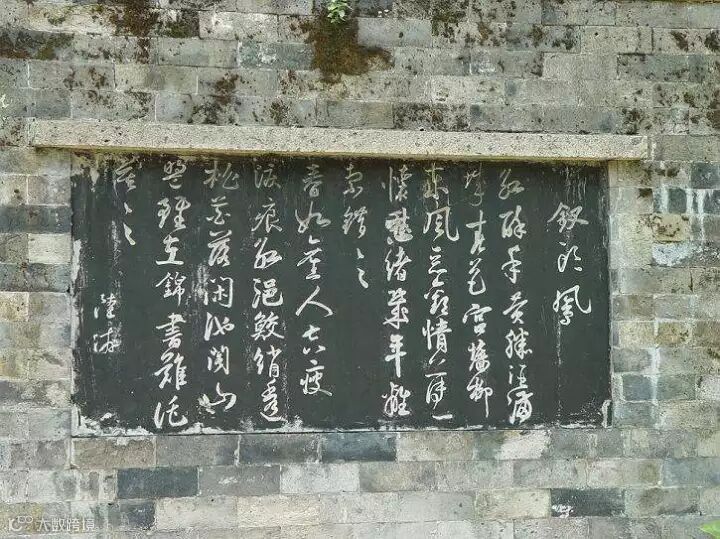 釵頭鳳
紅酥手黃縢酒滿
城春色宮牆柳
東風惡歡情薄一
懷愁緒幾年離
索錯〻〻
春如舊人空瘦
淚痕紅浥鮫綃透
桃花落閑池閣山
盟雖在錦書難託
莫〻〻
陸游
大数跨境